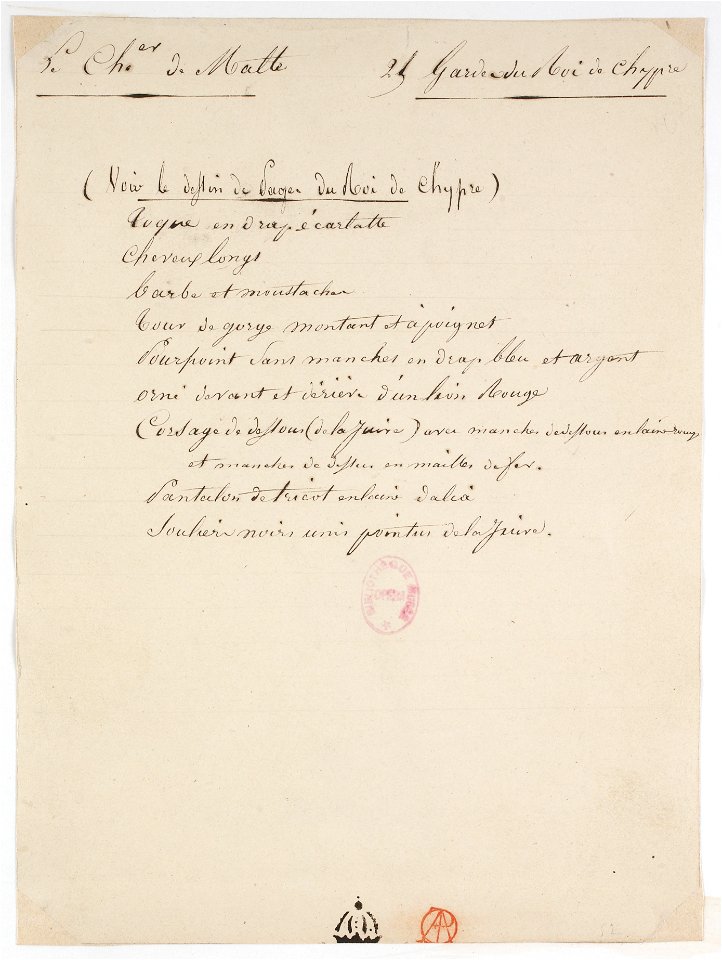 Le Ch.er de Malte 21 Gardes du Roi de Chypre
(Voir le dessin de Pages du Roi de Chypre)
Toque en drap écarlatte
Cheveux longs
barbe et moustaches
Tour de gorge montant et à poignets
Pourpoint sans manches en drap bleu et argent
orné devant et dérière d'un lion Rouge
Corsage de dessous (de la Juive) avec manches de dessous en laine rouge
et manches de dessus en mailles de fer.
Pantalon de tricot en laine dalia
Souliers noirs unis pointus de la Juive.
BIBLIOTHEQUE MUSEE
OPERA